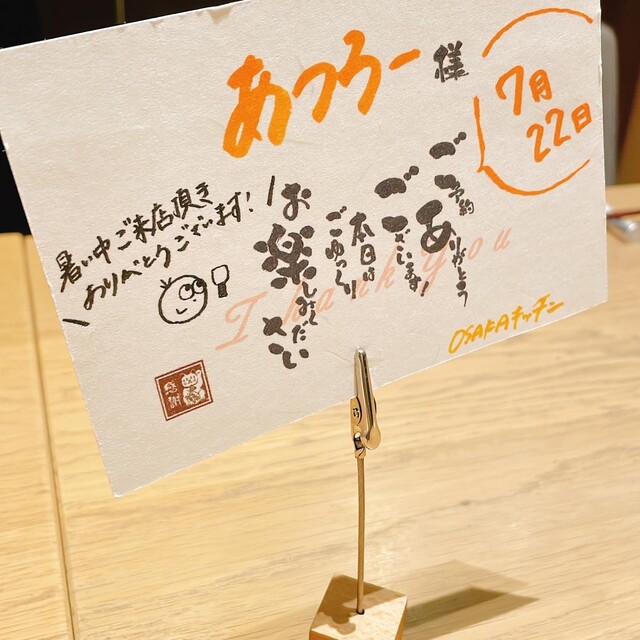 あつろー様
7月
22日
ご予約
ありがとう
ございます!
本日は
ごゆっくり
お楽しみください
Thank you
暑い中ご来店頂き
ありがとうございます!
OSAKAキッチン
感謝